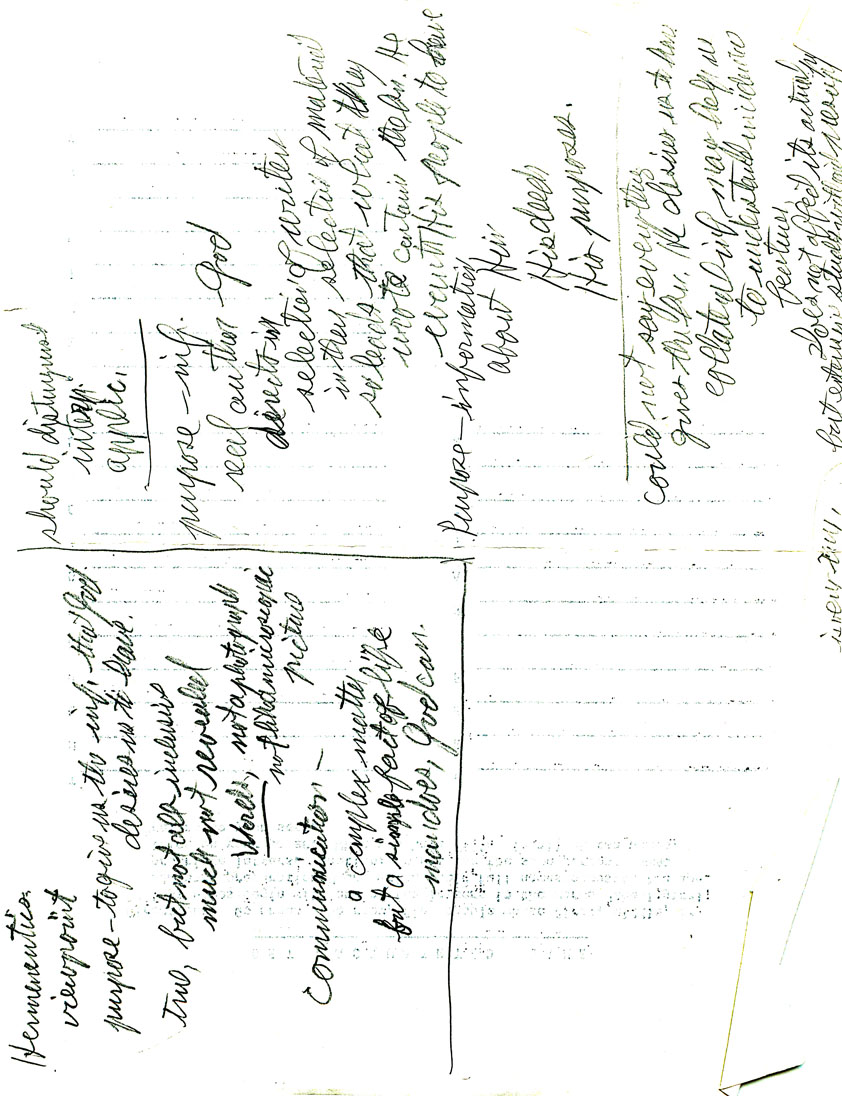 Hermeneutics
viewpoint
purpose - to give us the inf. that God
desires us to have.
true, but not all inclusive
much not revealed
Words, not a photograph
not like a microscopic
picture
Communication -
a complex matter
but a simple fact of life
man does, God can.
should distinguish
interp.
applic.
purpose - inf.
real author - God
directs in
selection of writers
in their selection of material
selects that what they
wrote contains the
His people to have
Purpose - information
about Him
His deeds
His purposes.
could not say everything
gives the He desires us to have
collateral inf. may help us
to understand incidence
features
Does not affect its actuality
but extensive study without